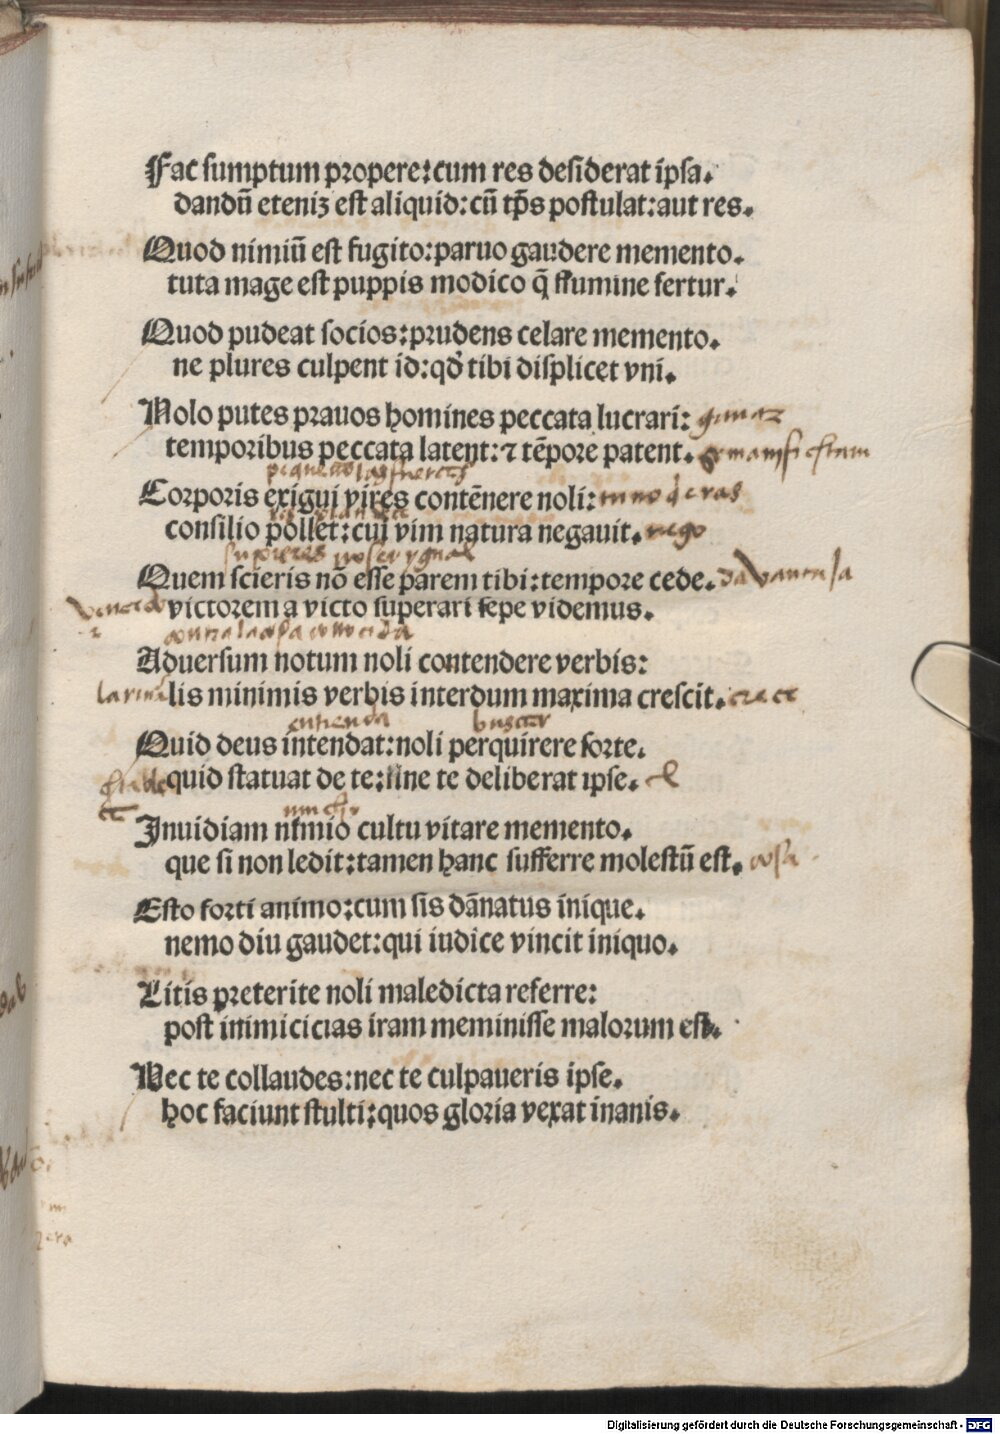 Fac sumptum propere:cum res desiderat ipsa.
dandū eteniꝫ est aliquid:cū tp̄s postulat:aut res.
Quod nimiū est fugito:paruo gaudere memento.
tuta mage est puppis modico q̄ flumine fertur.
Quod pudeat socios:prudens celare memento.
ne plures culpent id:qd̓ tibi displicet vni.
Nolo putes prauos homines peccata lucrari: ganar
temporibus peccata latent:⁊ tēpore patent.
pequeño las fuerças
Corporis exigui vires contēnere noli:
consilio pollet:cui vim natura negauit. nego
supieres no ser ygual
Quem scieris nō esse parem tibi:tempore cede. da ventaja
victorem a victo superari sepe videmus.
contra la cosa conocida
Aduersum notum noli contendere verbis:
lis minimis verbis interdum maxima crescit. crece
entienda buscar
Quid deus intendat:noli perquirere sorte.
quid statuat de te:sine te deliberat ipse. el
Inuidiam nimio cultu vitare memento.
que si non ledit:tamen hanc sufferre molestū est. cosa
Esto forti animo:cum sis dānatus inique.
nemo diu gaudet:qui iudice vincit iniquo.
Litis preterite noli maledicta referre:
post inimicicias iram meminisse malorum est.
Nec te collaudes:nec te culpaueris ipse.
hoc faciunt stulti:quos gloria vexat inanis.
Digitalisierung gefördert durch die Deutsche Forschungsgemeinschaft - DFG